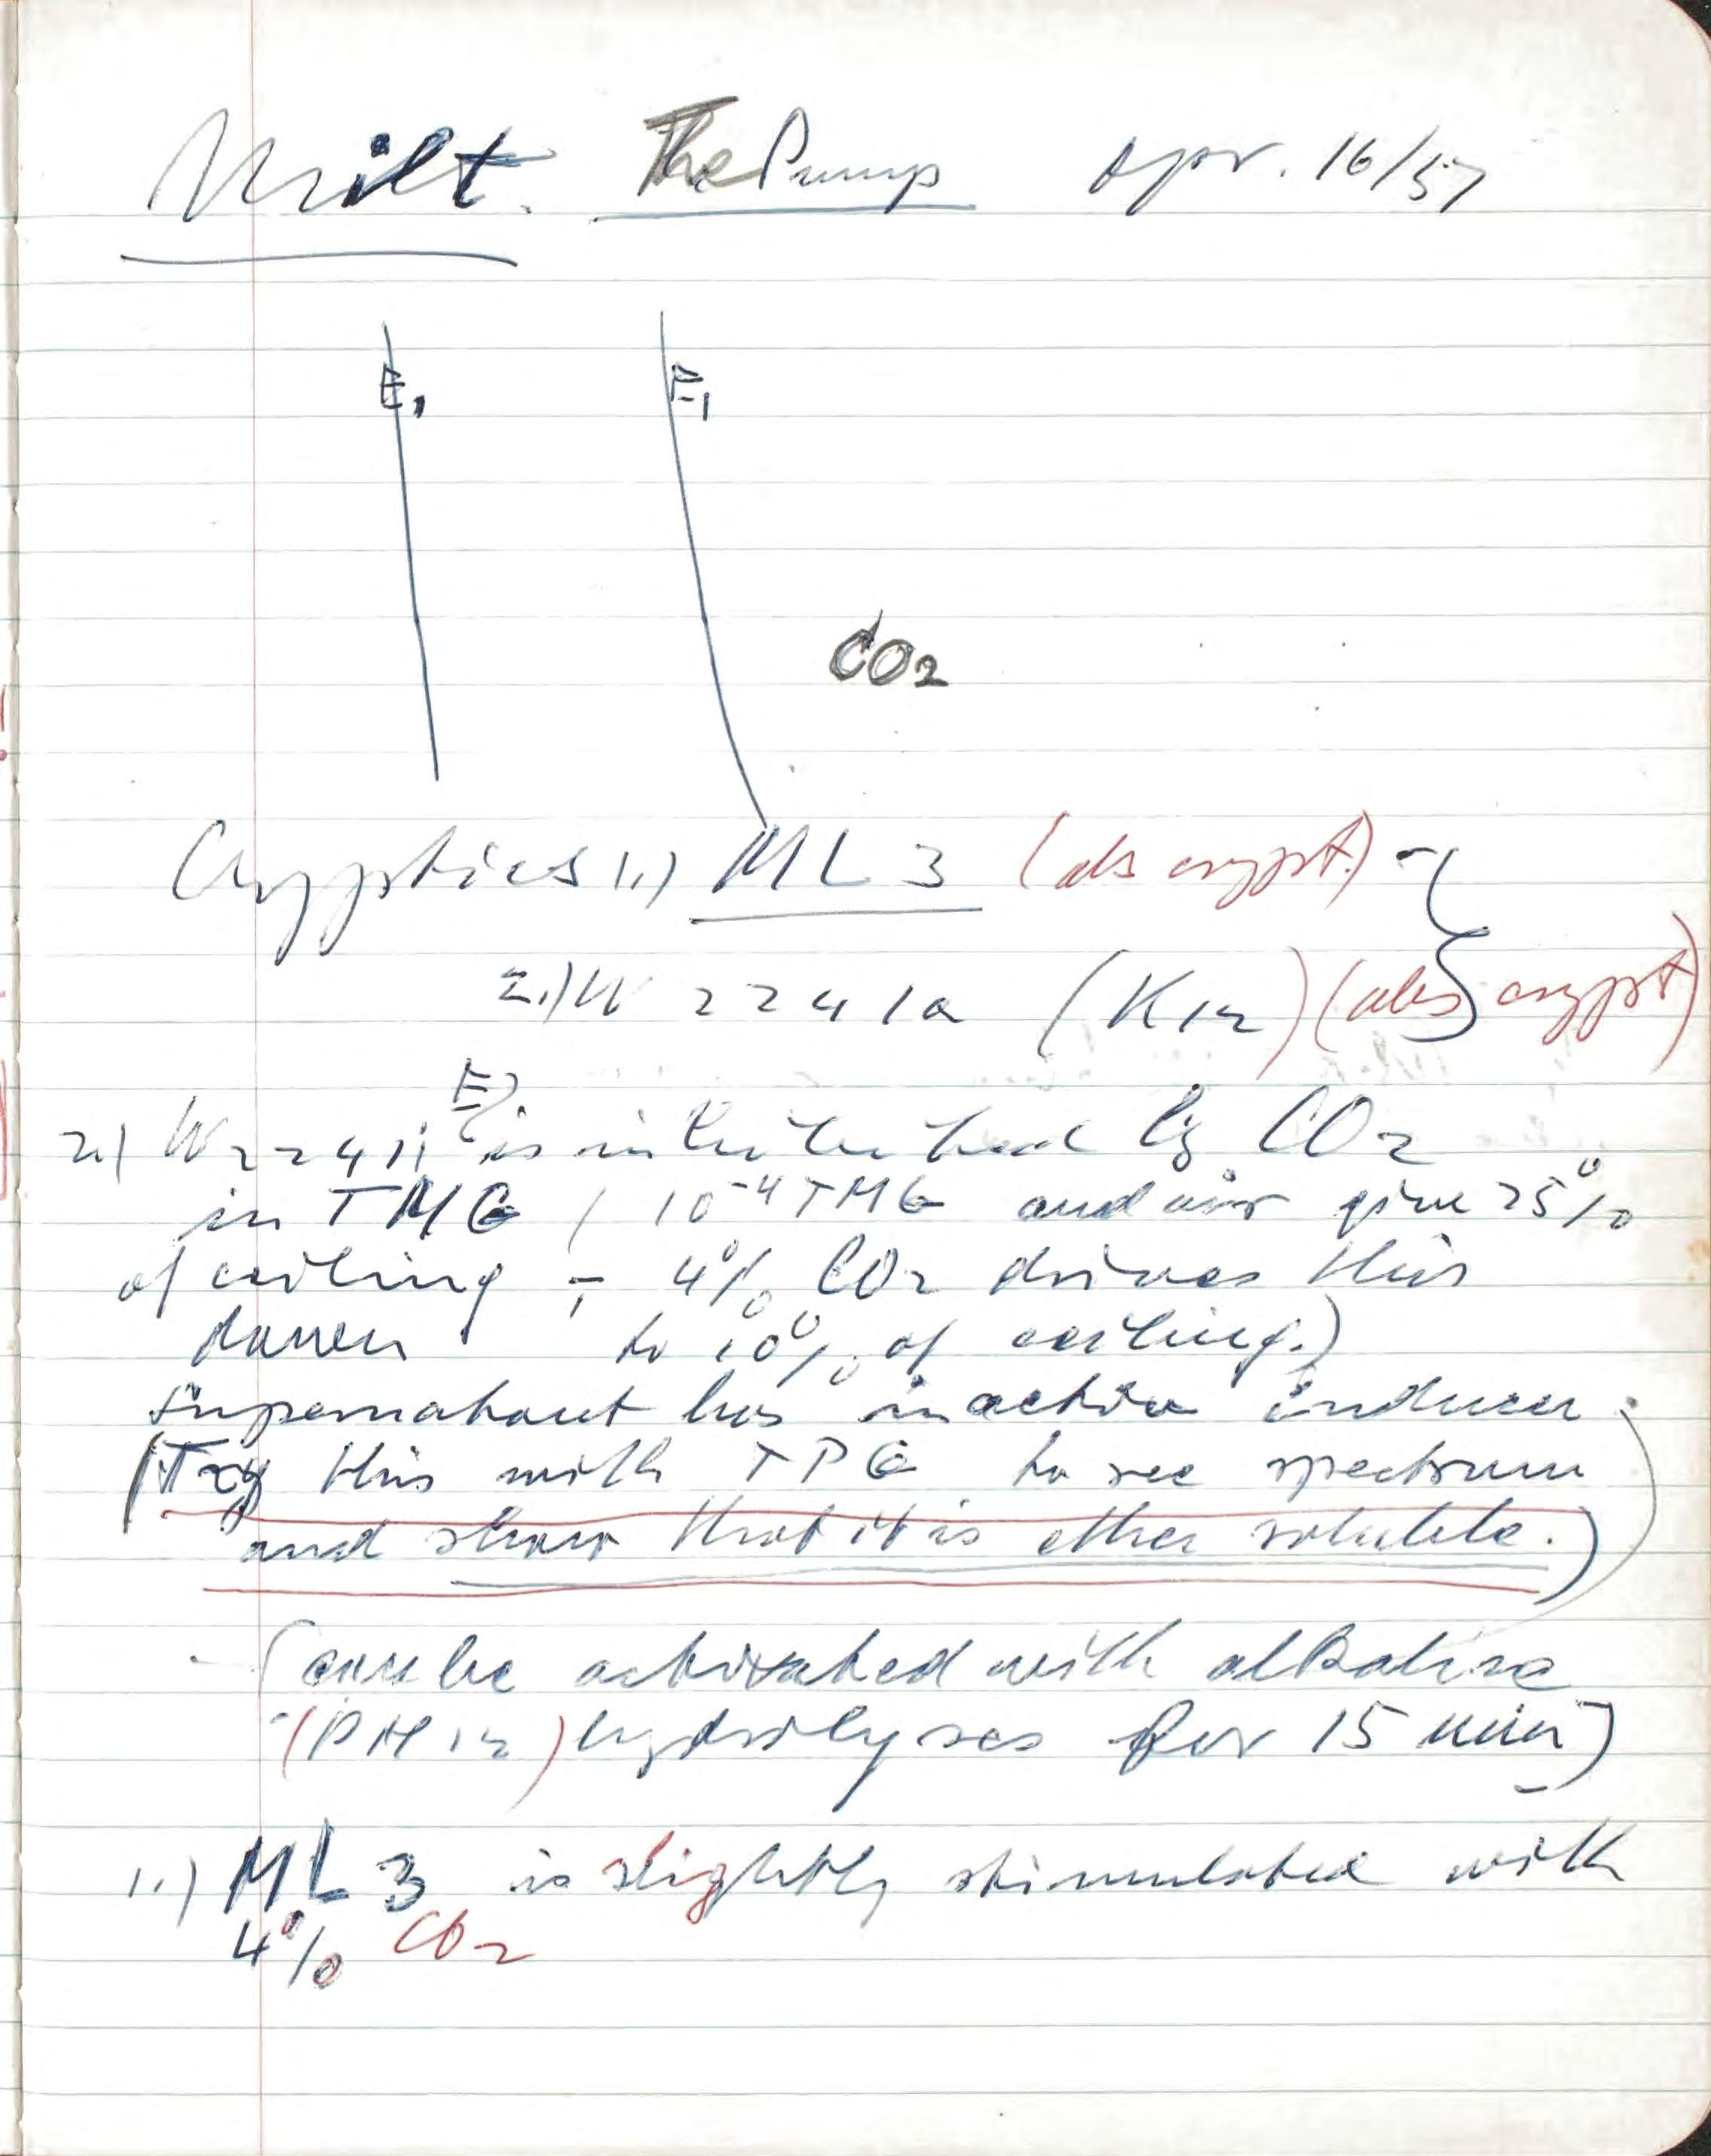 Milt. The Pump Apr. 16/57
E1 E1
CO2
Cryptics 1.) ML 3 (abs crypt.)
2.) W 2241a (K12) (abs crypt)
2.) W2241 is inhibited by CO2
in TMG ( 10-4 TMG and air give 25%
of ceiling ; 4% CO2 drives this
down to 10% of ceiling.)
Supernatant has inactive inducer.
(Try this with TPG to see spectrum
and show that it is ether soluble.)
(can be activated with alkaline
(PH 12) hydrolyses for 15 min)
1.) ML 3 is slightly stimulated with
4% CO2